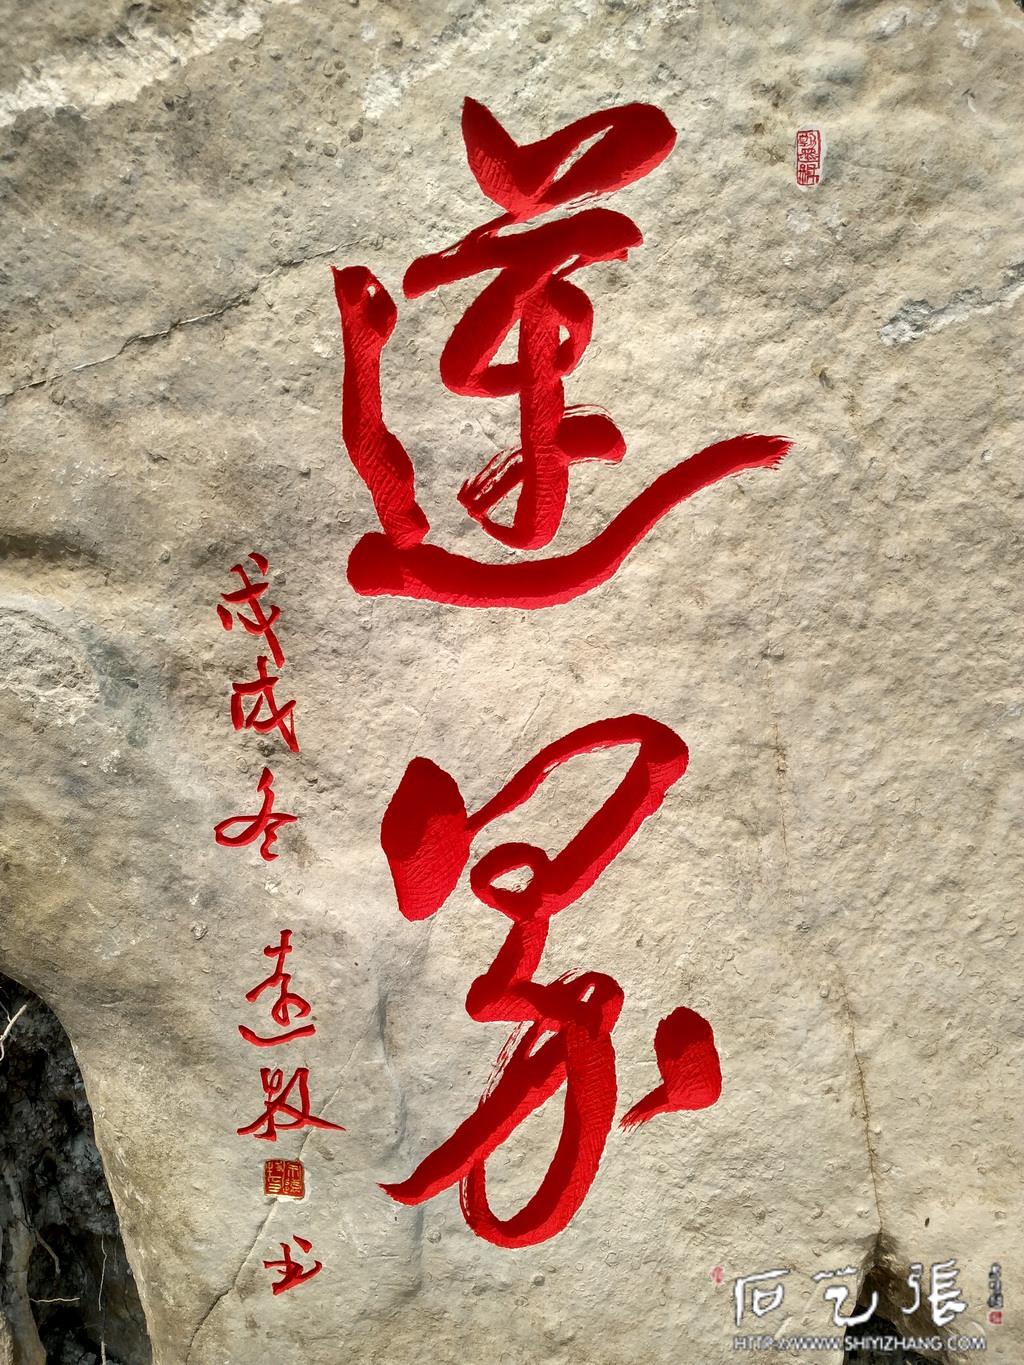 蓮界
戊戌冬
遠
书
石艺張
HTTP://WWW.SHIYIZHANG.COM